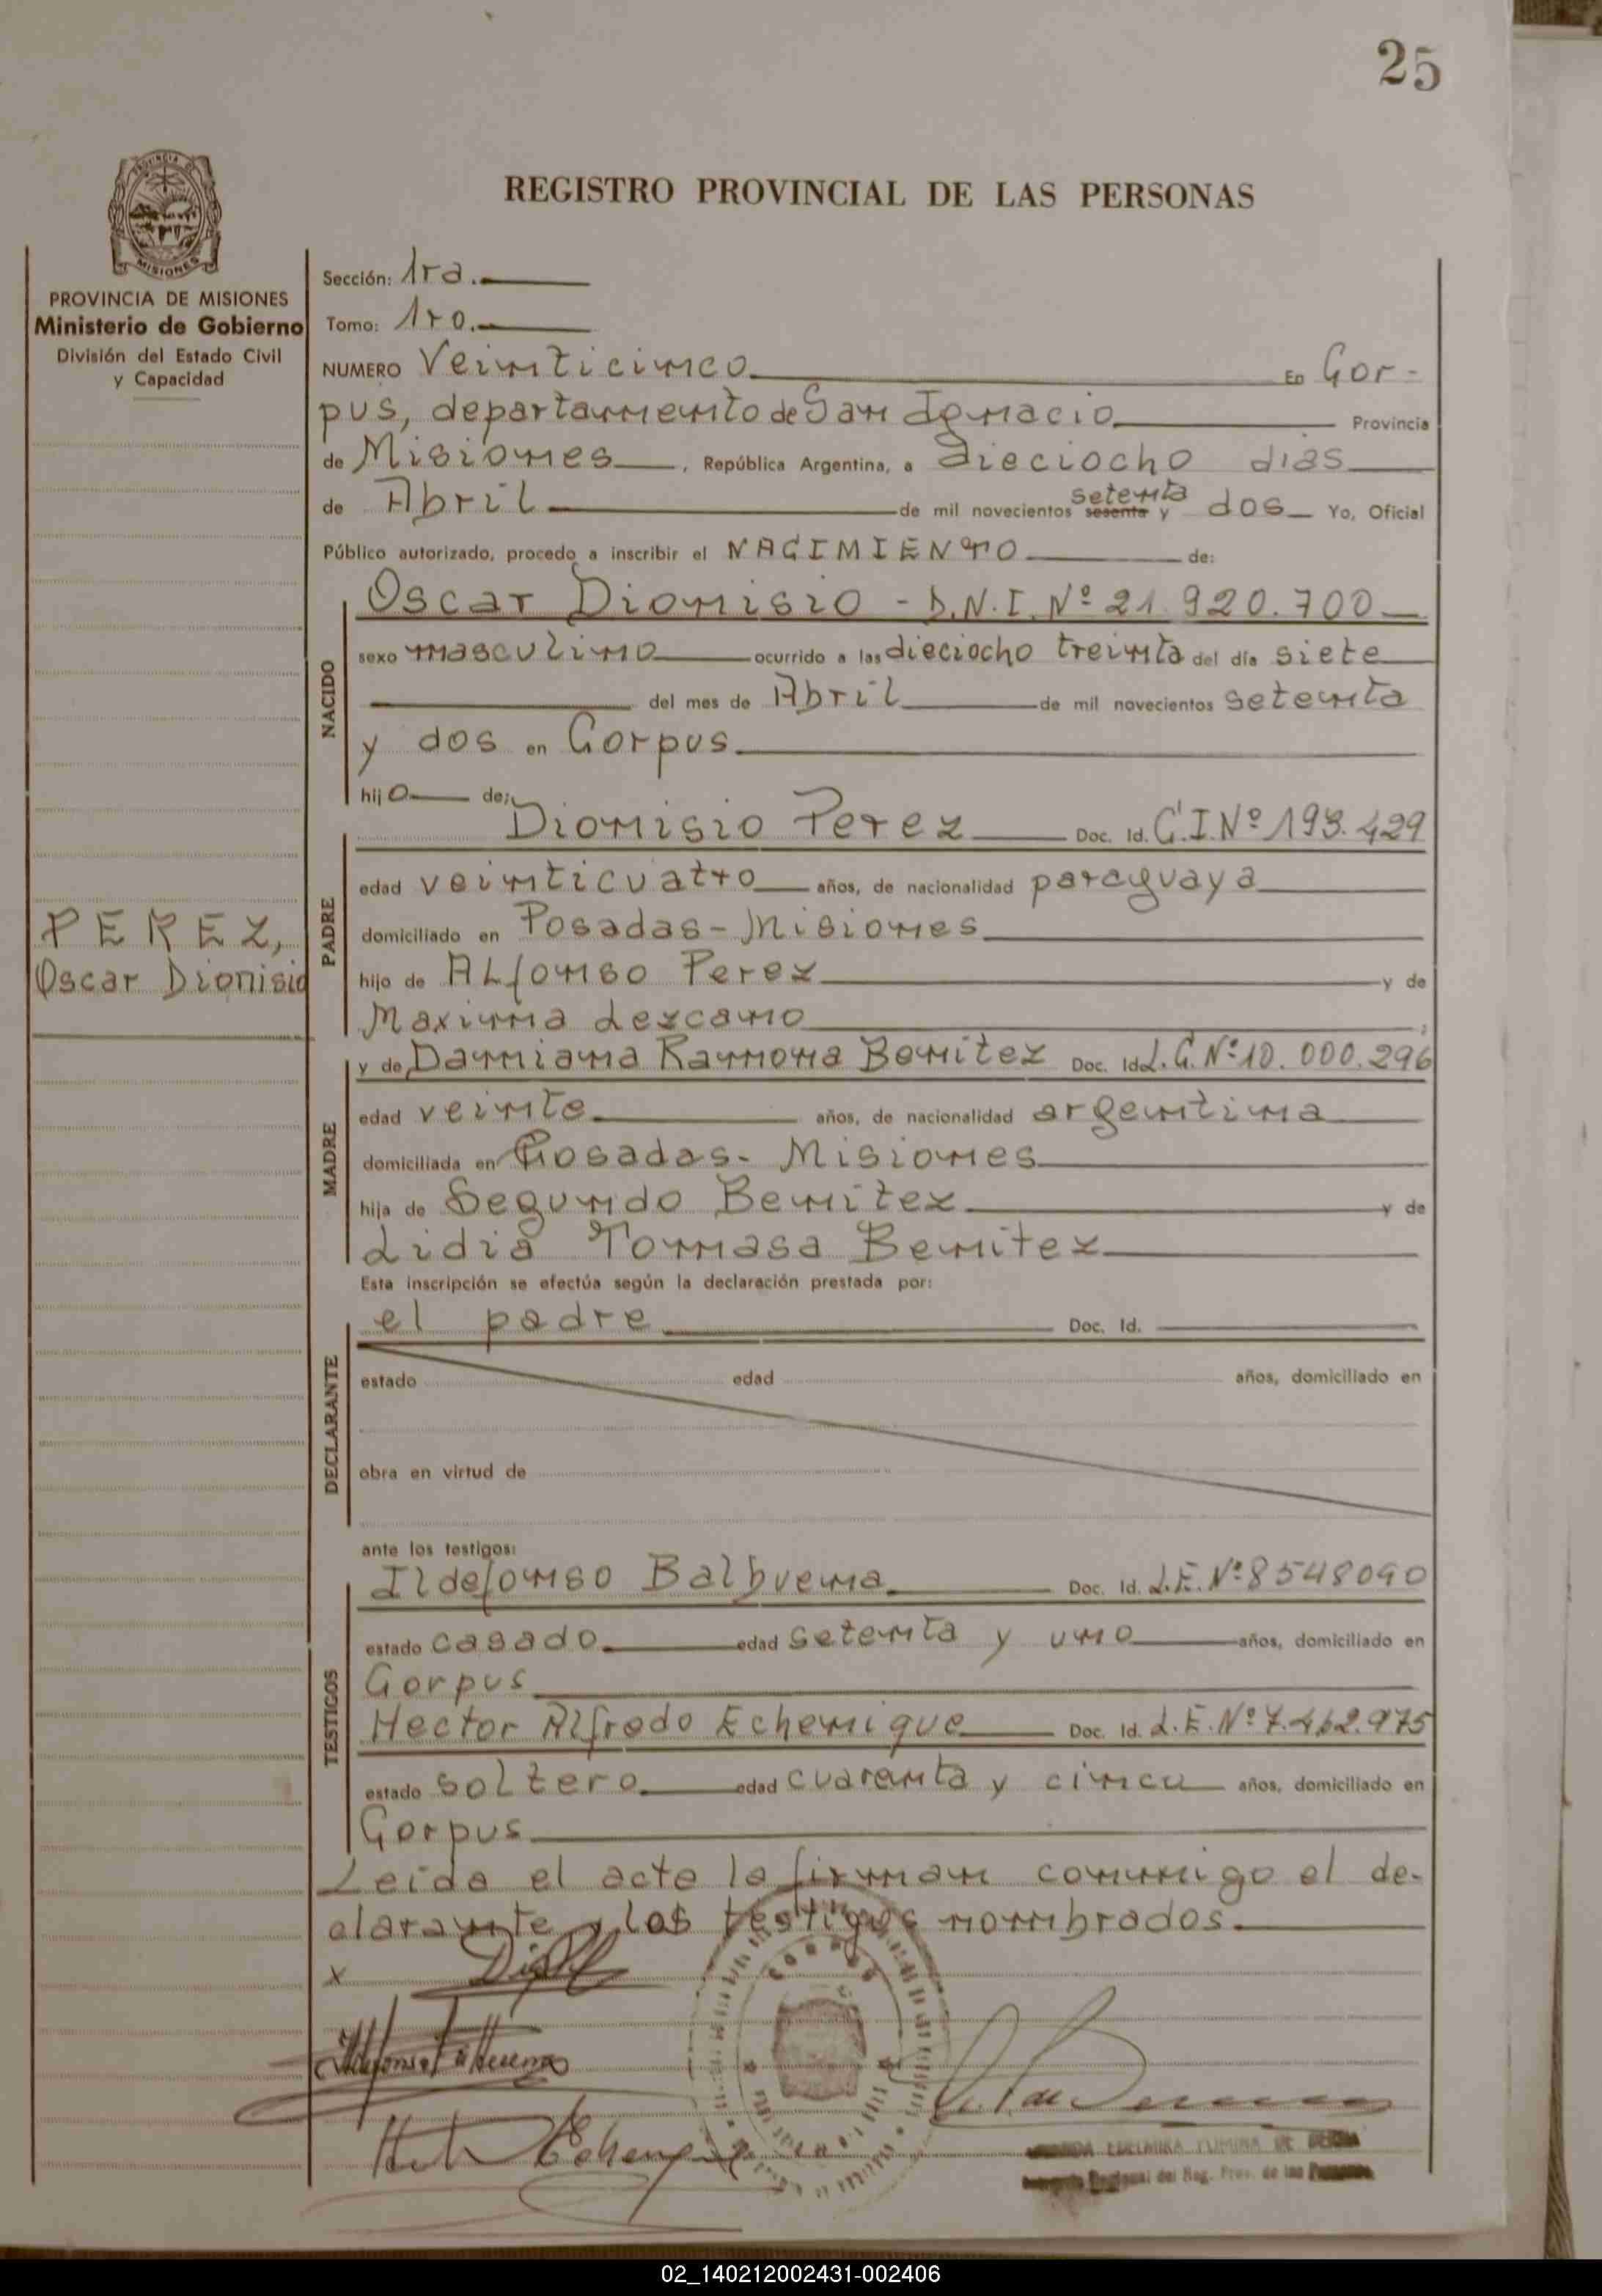 25
REGISTRO PROVINCIAL DE LAS PERSONAS
PROVINCIA DE
MISIONES
PROVINCIA DE MISIONES
Ministerio de Gobierno
División del Estado Civil
y Capacidad
PEREZ,
Oscar Dionisio
Sección: 1ra.
Tomo: 1ro.
NUMERO Veinticinco En Cor-
pus, departamento de San Ignacio Provincia
de Misiones, República Argentina, a dieciocho dias
de Abril de mil novecientos setenta sesenta y dos Yo, Oficial
Público autorizado, procedo a inscribir el NACIMIENTO de:
NACIDO
Oscar Dionisio - D.N.I. Nº 21.920.700
sexo masculino ocurrido a las dieciocho treinta del día siete
del mes de Abril de mil novecientos setenta
y dos en Corpus
hijo de:
PADRE
Dionisio Perez Doc. Id. C.I.Nº 193.429
edad veinticuatro años, de nacionalidad paraguaya
domiciliado en Posadas-Misiones
hijo de Alfonso Perez y de
Maxima Lezcano;
MADRE
y de Damiana Ramona Benitez Doc. Id L.C. Nº 10.000.296
edad veinte años, de nacionalidad argentina
domiciliada en Posadas- Misiones
hija de Segundo Benitez y de
Lidia Tomasa Benitez
Esta inscripción se efectúa según la declaración prestada por:
DECLARANTE
el padre Doc. Id.
estado edad años, domiciliado en
obra en virtud de
ante los testigos:
TESTIGOS
Ildefonso Balbuena Doc. Id. L.E. Nº 8548090
estado casado edad setenta y uno años, domiciliado en
Corpus
Hector Alfredo Echenique Doc. Id. L.E. Nº 7.462.975
estado soltero edad cuarenta y cinco años, domiciliado en
Corpus
Leída el acta la firman conmigo el de-
clarante y los testigos nombrados.
x
CORPUS
EDELMIRA DE
del Reg. Prov. de las Personas
02_140212002431-002406